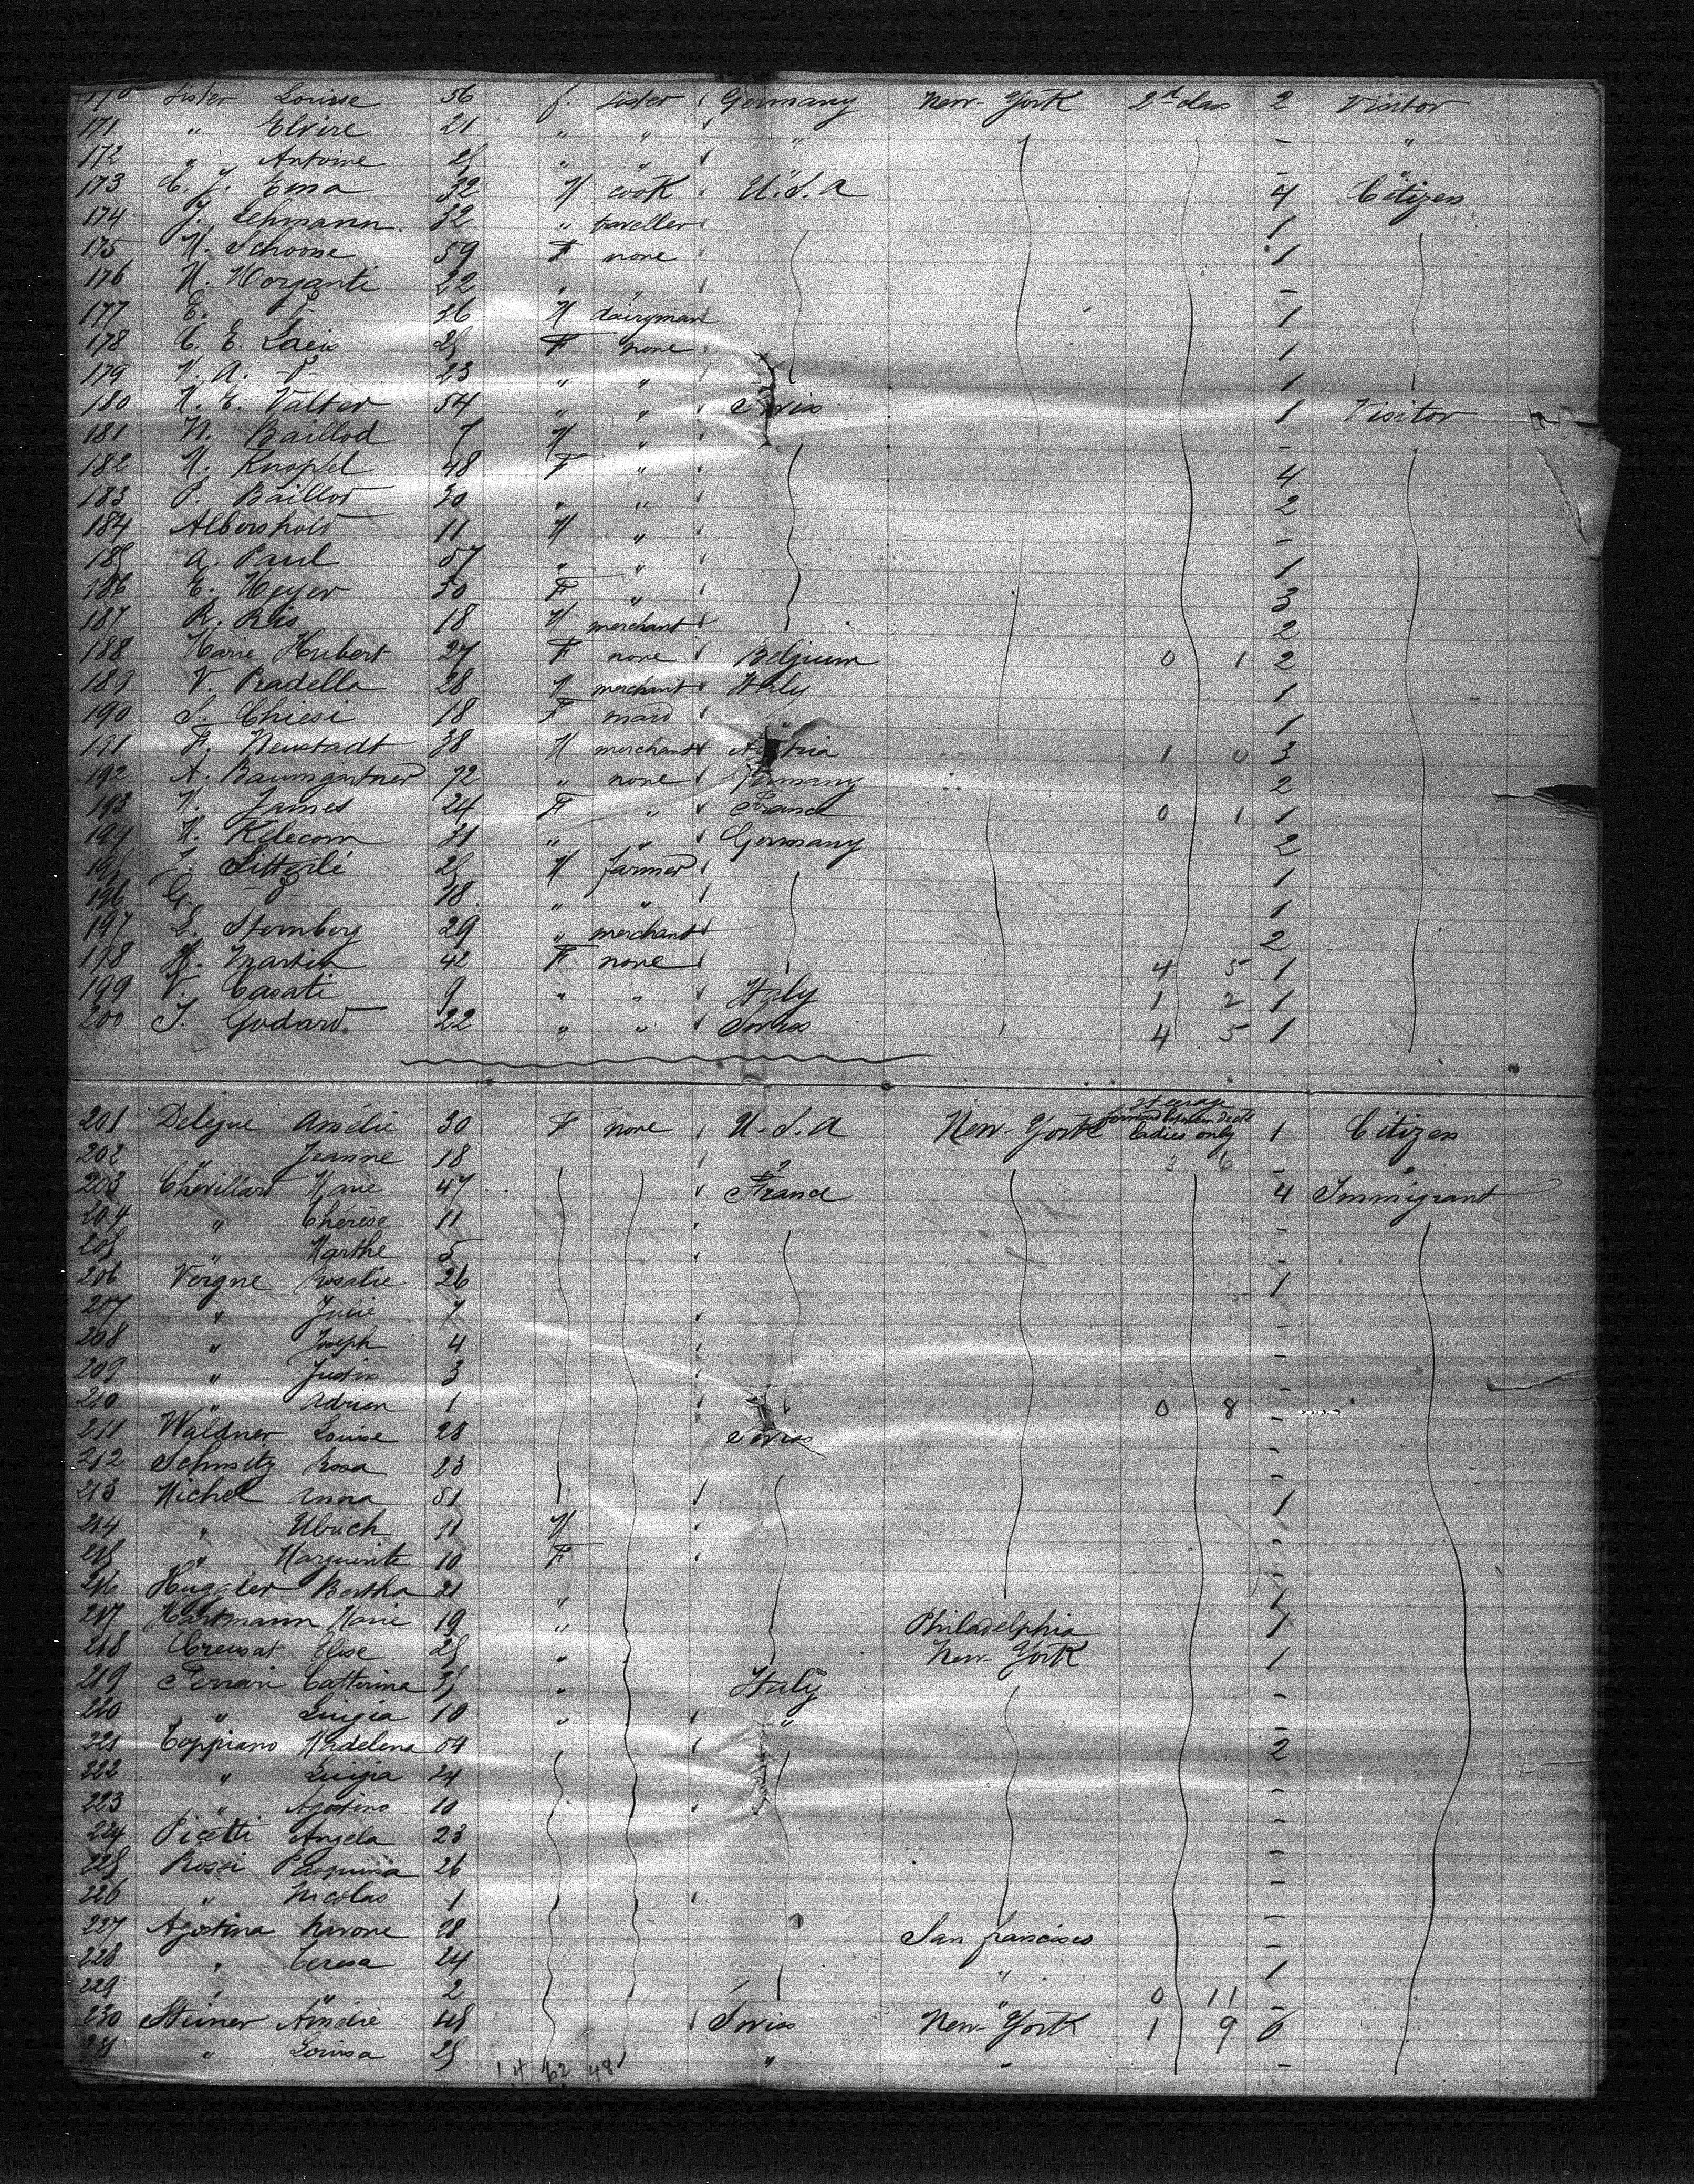 170 Sister Louise 56 f. sister Germany New-York 2d class 2 Visitor
171 " Elvire 21 " " " - "
172 " Antoine 25 " " " - "
173 E. J. Ema 32 M cook U.S.A 4 Citizen
174 J. Lehmann. 32 " traveller 1
175 M. Schoose 59 F none 1
176 M. Morganti 22 " " -
177 E. -d- 26 M dairyman 1
178 C. E. Laeis 25 F none 1
179 M. A. -d- 23 " " 1
180 M. E. Valter 54 " " Swiss 1 Visitor
181 M. Baillod 7 M " -
182 M. Knopfel 48 F " 4
183 P. Baillod 30 " " 2
184 Albershold 11 M " -
185 A. Paul 57 " " 1
186 E. Meyer 30 F " 3
187 R. Ris 18 M merchant 2
188 Marie Hubert 27 F none Belgium 0 1 2
189 V. Pradella 28 M merchant Italy 1
190 S. Chiesi 18 F maid " 1
191 F. Neustadt 38 M merchant Austria 1 0 3
192 A. Baumgartner 72 " none Germany 2
193 M. James 24 F " France 0 1 1
194 M. Kelecom 31 " " Germany 2
195 J. Litterlé 25 M farmer 1
196 G. -d- 18 " " 1
197 L. Sternberg 29 " merchant 2
198 Martin 42 F none 4 5 1
199 V. Casati 9 " " Italy 1 2 1
200 J. Godard 22 " " Swiss 4 5 1
201 Delegue Amélie 30 F none U.S.A New-York steerage forward between decks ladies only 1 Citizen
202 " Jeanne 18 " 3 6 - "
203 Chevillard Marie 47 France 4 Immigrant
204 " Thérèse 11 -
205 " Marthe 5 -
206 Vergne Rosalie 26 1
207 " Julie 7 -
208 " Joseph 4 -
209 " Justin 3 -
210 " Adrien 1 0 8 -
211 Waldner Louise 28 Swiss -
212 Schmitz Rosa 23 -
213 Michel Anna 51 1
214 " Ulrich 11 M -
215 " Marguerite 10 F -
216 Huggler Bertha 21 " 1
217 Hartmann Marie 19 " Philadelphia 1
218 Creusat Elise 25 " New-York 1
219 Ferrari Catterina 35 " Italy -
220 " Luigia 10 " " -
221 Coppiano Madelena 54 2
222 " Luigia 24 -
223 " Agostino 10 -
224 Picetti Angela 23 -
225 Rossi Pasquina 26 -
226 " Nicolas 1 -
227 Agostina Navone 28 San francisco -
228 " Teresa 24 " 1
229 " " 2 " 0 11 -
230 Steiner Amélie 48 Swiss New-York 1 9 6
231 " Louisa 25 " " -
14 62 48